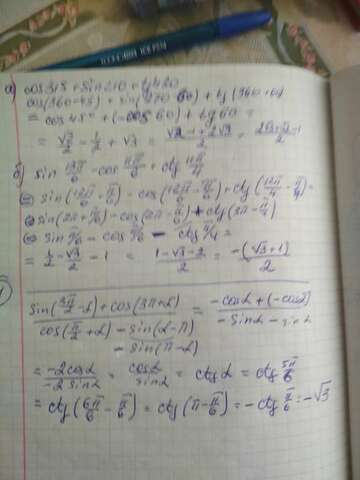 а) cos 315 + sin 210 + tg 420
cos(360-45) + sin(270-60) + tg(360+60)
= cos 45° + (-cos 60) + tg 60 =
= √2/2 - 1/2 + √3 = (√2 - 1 + 2√3)/2 = (2√3+√2-1)/2
б) sin 13π/6 - cos 11π/6 + ctg 11π/4
= sin(12π/6 + π/6) - cos(12π/6 - π/6) + ctg(12π/4 - π/4) =
= sin(2π + π/6) - cos(2π - π/6) + ctg(3π - π/4)
= sin π/6 - cos π/6 - ctg π/4 =
= 1/2 - √3/2 - 1 = (1-√3-2)/2 = -(√3+1)/2
(sin(3π/2 - α) + cos(3π+α))/(cos(π/2 + α) - sin(α-π)) = (-cosα + (-cosα))/(-sinα - sinα)
- sin(π-α)
= -2cosα/-2sinα = cosα/sinα = ctgα = ctg 5π/6
= ctg(6π/6 - π/6) = ctg(π - π/6) = -ctg π/6 = -√3